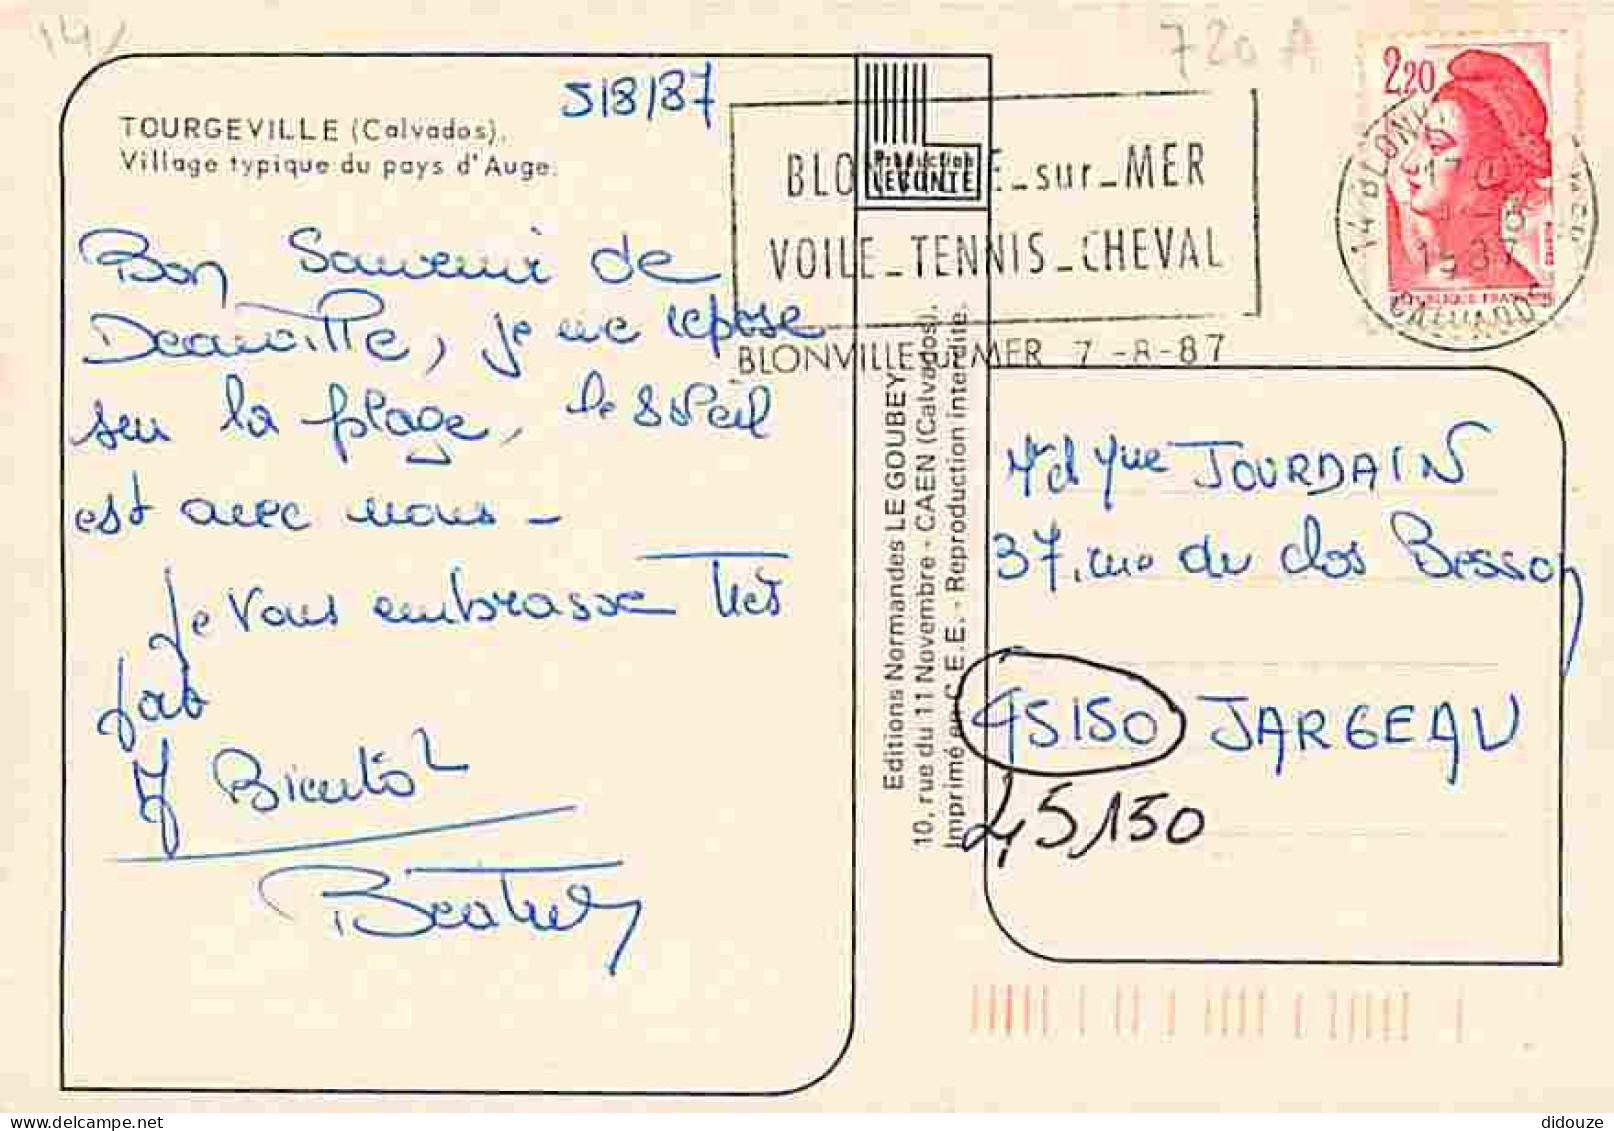 14
720 A
5/8/87
TOURGEVILLE (Calvados).
Village typique du pays d'Auge.
Bon Souvenir de
Deauville, je me repose
sur la plage, le soleil
est avec nous -
Je vous embrasse Très
fort
A Bientôt
Béatrice
Production
LECONTE
BLONVILLE_sur_MER
VOILE_TENNIS_CHEVAL
BLONVILLE SUR MER 7 -8-87
2,20
14 BLONVILLE
17 H
7-8
1987
CALVADOS
REPUBLIQUE FRANÇAISE
Editions Normandes LE GOUBEY
10, rue du 11 Novembre - CAEN (Calvados).
Imprimé en C.E.E. - Reproduction interdite.
Mr et Mme JOURDAIN
37, rue du clos Besson
45150 JARGEAU
45150
didouze